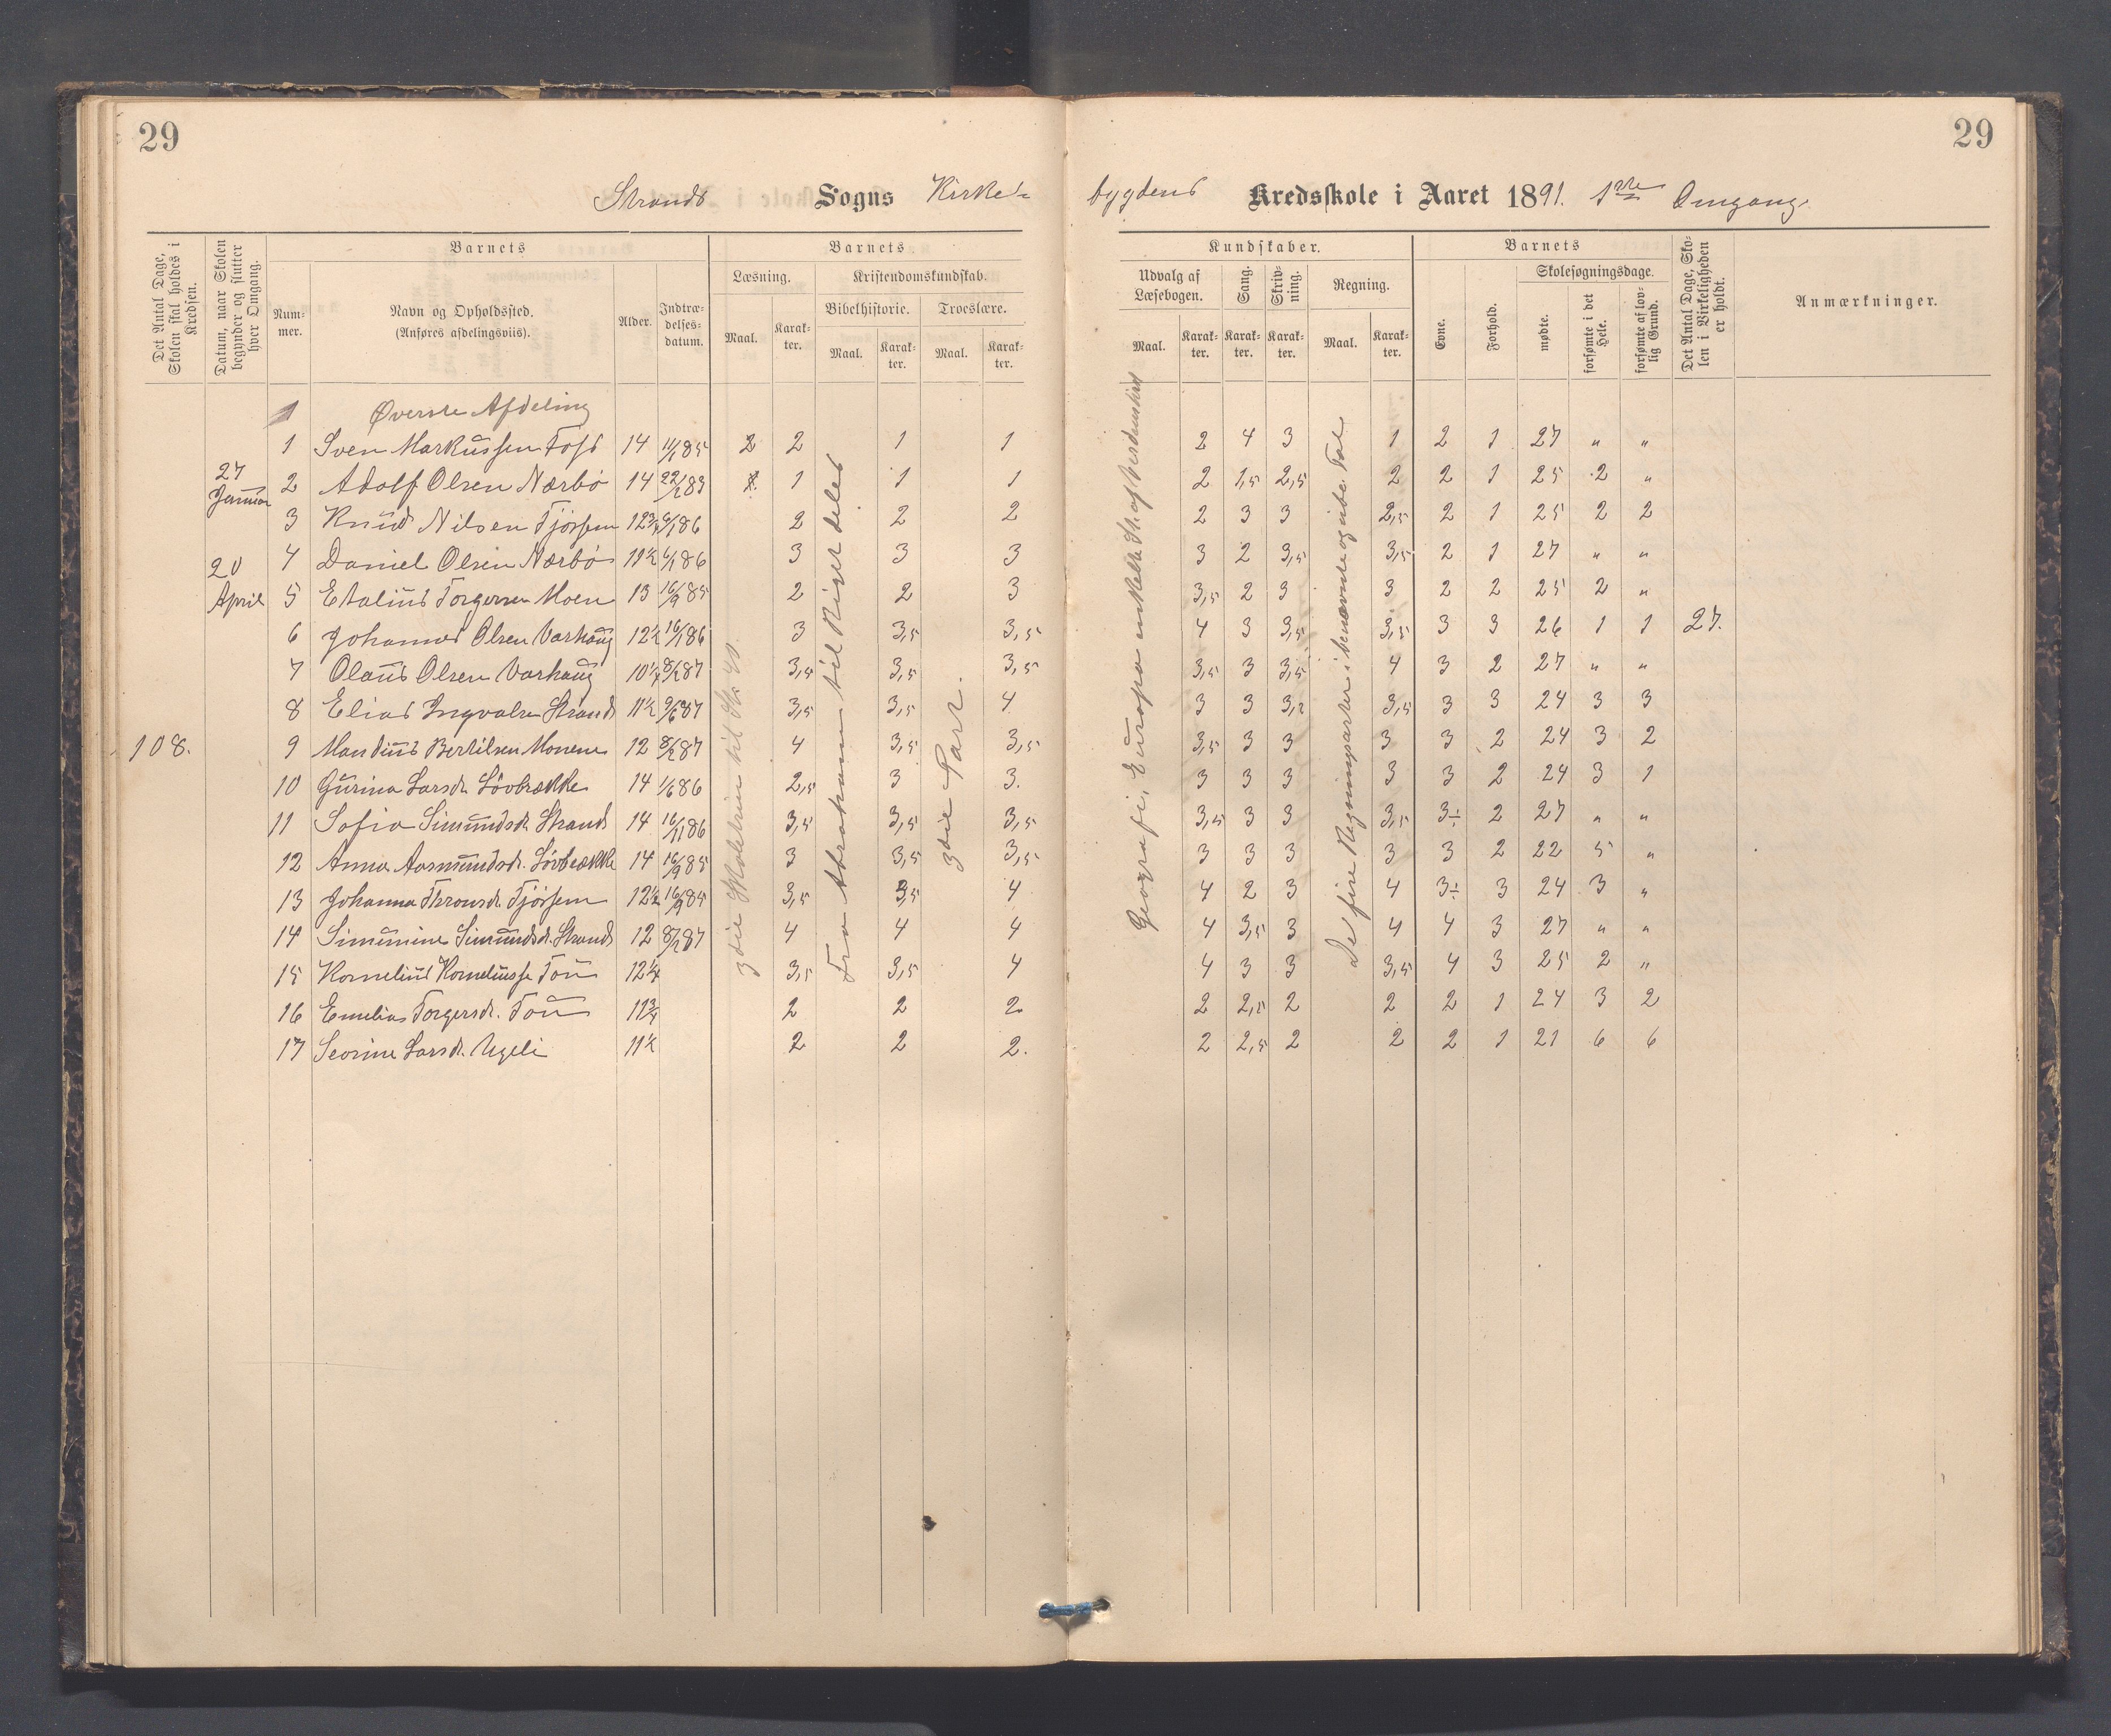 29
29
Strands Sogns Kirke-
bygdens Kredsskole i Aaret 1891. 1ste Omgang.
Det Antal Dage, Skolen skal holdes i Kredsen.
Datum, naar Skolen begynder og slutter hver Omgang.
Barnets
Num-mer.
Navn og Opholdssted.
(Anføres afdelingsviis).
Alder.
Indtræ-delses-datum.
Barnets
Læsning.
Maal.
Karak-ter.
Kristendomskundskab.
Bibelhistorie.
Maal.
Karak-ter.
Troeslære.
Maal.
Karak-ter.
Kundskaber.
Udvalg af Læsebogen.
Maal.
Karak-ter.
Sang.
Karak-ter.
Skriv-ning.
Karak-ter.
Regning.
Maal.
Karak-ter.
Barnets
Evne.
Forhold.
Skolesøgningsdage.
mødte.
forsømte i det Hele.
forsømte af lov-lig Grund.
Det Antal Dage, Sko-len i Virkeligheden er holdt.
Anmærkninger.
Øverste Afdeling
1 Sven Markussen 14 11/1 85 2 2 1 1 2 4 3 1 2 1 27 " "
27 Januar
2 Adolf Olsen Nærbø 14 1 1 1 2 1,5 2,5 2 2 1 25 2 "
3 Knud Nilsen Tjössem 12 3/4 6/1 86 2 2 2 2 3 3 2,5 2 1 25 2 2
20 April
4 Daniel Olsen Nærbø 11 1/2 6/1 86 3 3 3 3 2 3,5 3,5 2 1 27 " "
5 Torgersen Moen 13 16/9 85 2 2 3 3,5 2 3 3 2 2 25 2 "
6 Johannes Olsen Varhaug 12 1/2 16/1 86 3 3,5 3,5 4 3 3,5 3,5 3 3 26 1 1 27.
7 Olaus Olsen Varhaug 10 1/4 8/2 87 3,5 3,5 3,5 3,5 3 3,5 4 3 2 27 " "
8 Elias Ingvalsen Strand 11 1/2 9/6 87 3,5 3,5 4 3 3 3,5 3 3 24 3 3
108.
9 Mandius Bertilsen Monene 12 8/2 87 4 3,5 3,5 3,5 3 3 3 3 2 24 3 2
10 Gurina Larsdr. Lövbrække 14 1/6 86 2,5 3 3. 3 3 3 3 3 2 24 3 1
11 Sofia Simundsdr. Strand 14 16/11 86 3,5 3,5 3,5 3,5 3 3 3,5 3÷ 2 27 " "
12 Anna Aasmundsdr. Lövbrække 14 16/9 85 3 3,5 3,5 3 3 3 3 3 2 22 5 "
13 Johanna Tjössem 12 1/2 16/9 85 3,5 3,5 4 4 2 3 4 3÷ 3 24 3 "
14 Simunine Simundsdr. Strand 12 8/2 87 4 4 4 4 3,5 3 4 4 3 27 " "
15 Kornelius Tou 12 1/4 3,5 3,5 4 4 3 3 3,5 4 3 25 2 "
16 Emelia Torgersdr. Tou 11 3/4 2 2 2 2 2,5 2 2 2 1 24 3 2
17 Seorine Larsdr. Ugeli 11 1/2 2 2 2. 2 2,5 2 2 2 1 21 6 6
3die Skoletrin til St. 40.
Fra Abraham til Riget deles
3die Part.
Geografi, Europa enkelte St. af Verdenshist.
De fire Regningsarter i benævnte og ube. Tal